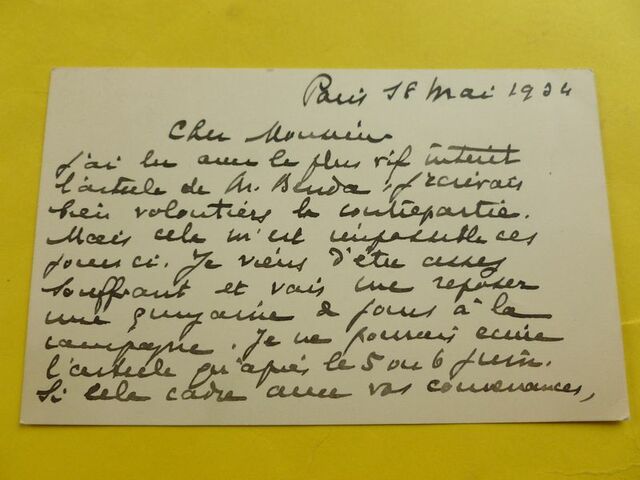 Paris 18 Mai 1934
Cher Monsieur
J'ai lu avec le plus vif intérêt
l'article de M. Benda. J'écrirais
bien volontiers la contrepartie.
Mais cela m'est impossible ces
jours ci. Je viens d'être assez
souffrant et vais me reposer
une quinzaine de jours à la
campagne. Je ne pourrais écrire
l'article qu'après le 5 ou 6 Juin.
Si cela cadre avec vos convenances,